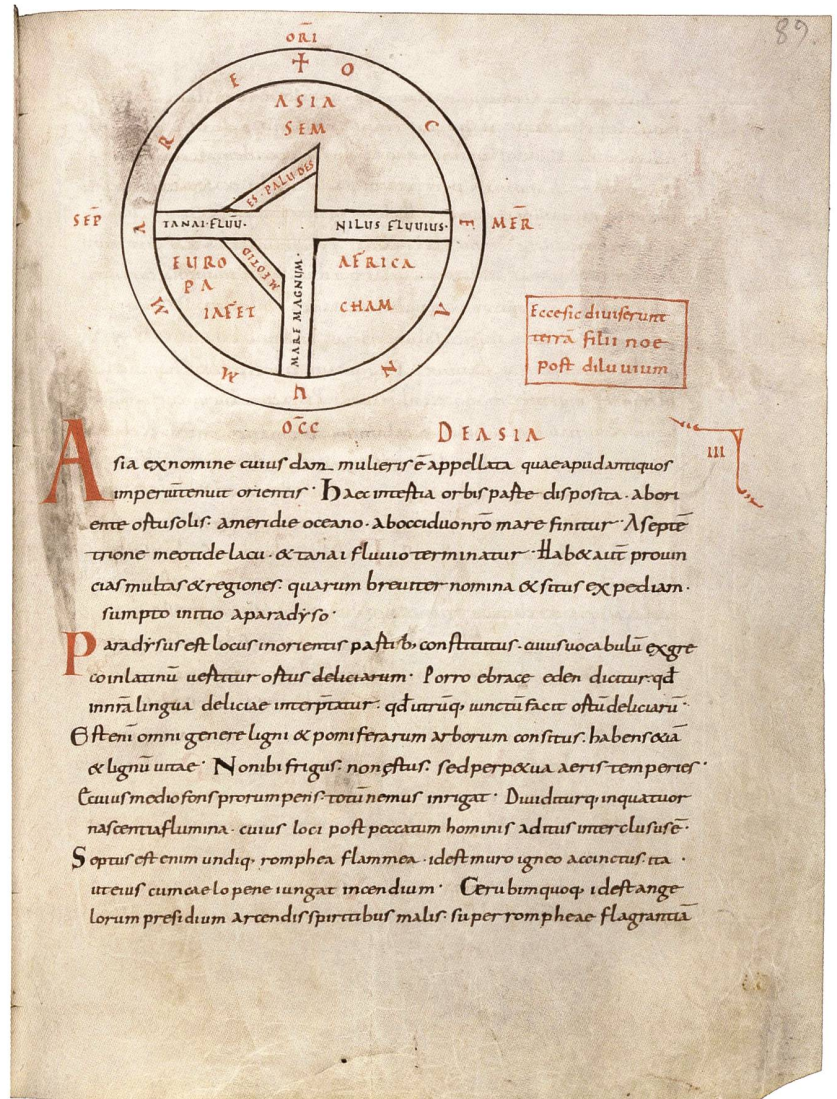 89.
ORĪ
MARE OCEANUM
ASIA
SEM
ES·PALUDES
SEP̄
TANAI·FLUŪ·
NILUS FLUUIUS·
MER̄
EURO
PA
IAFET
MEOTID
MARE MAGNUM·
AFRICA
CHAM
Ecce sic diuiserunt
terrā filii noe
post diluuium
OC̄C
DE ASIA
III
Asia ex nomine cuius dam mulieris ē appellata quae apud antiquos
imperiū tenuit orientis · Haec in tertia orbis parte disposita · ab ori
ente ortu solis· a meridie oceano · ab occiduo nr̄o mare finitur · A septē
trione meotide lacu · & tanai fluuio terminatur · Hab& aūt prouin
cias multas & regiones· quarum breuiter nomina & situs expediam·
sumpto initio a paradyso·
Paradysus est locus in orientis partib; constitutus · cuius uocabulū ex gre
co in latinū uertitur ortus deliciarum · Porro ebrace eden dicitur· qđ
in nr̄a lingua deliciae interp̄tatur· qđ utrūq; iunctū facit ortū deliciarū·
Est enī omni genere ligni & pomiferarum arborum consitus· habens &iā
& lignū uitae · Non ibi frigus· non ęstus· sed perp&ua aeris temperies·
E cuius medio fons prorumpens· totū nemus inrigat · Diuiditurq; in quatuor
nascentia flumina · cuius loci post peccatum hominis aditus interclusus ē·
Septus est enim undiq; romphea flammea · id est muro igneo accinctus· ita ·
ut eius cum caelo pene iungat incendium · Cerubim quoq; id est ange
lorum presidium arcendis spiritibus malis· super rompheae flagrantiā